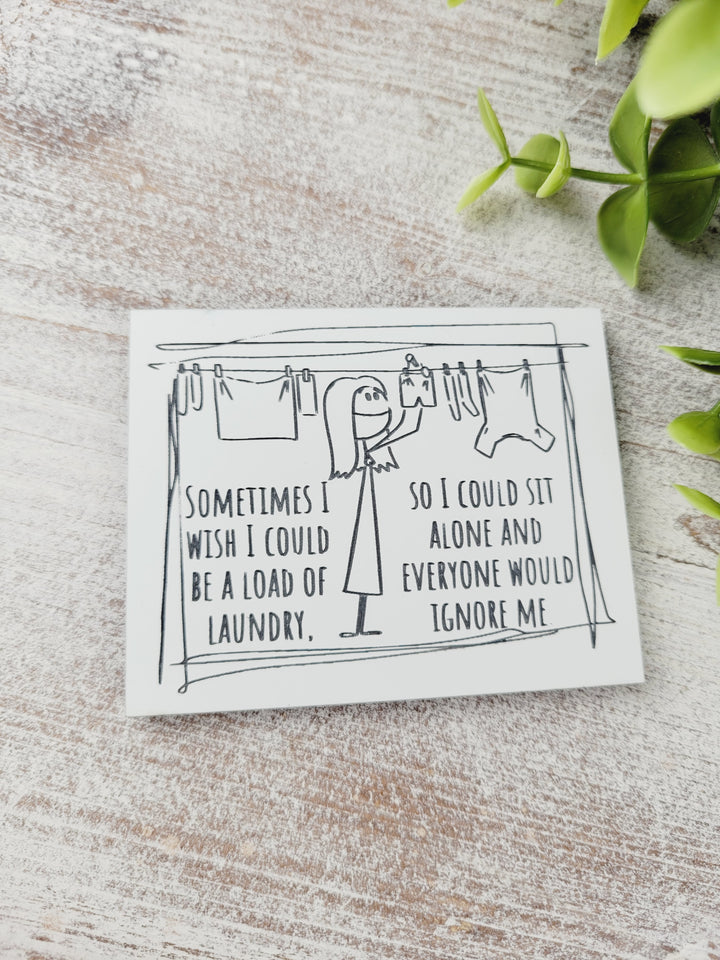 SOMETIMES I
WISH I COULD
BE A LOAD OF
LAUNDRY,
SO I COULD SIT
ALONE AND
EVERYONE WOULD
IGNORE ME